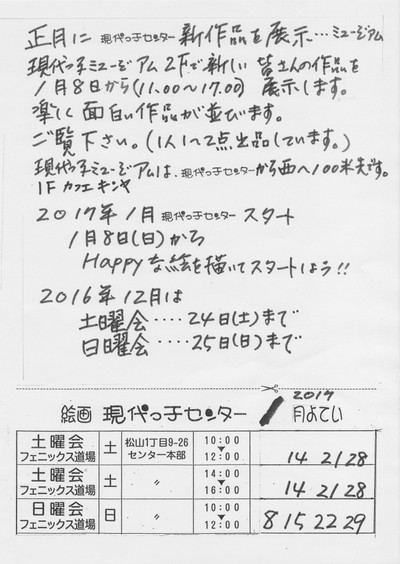 正月に 現代っ子センター 新作品を展示…ミュージアム
現代っ子ミュージアム2Fで新しい皆さんの作品を
1月8日から(11.00〜17.00) 展示します。
楽しく面白い作品が並びます。
ご覧下さい。(1人1〜2点出品しています。)
現代っ子ミュージアムは、現代っ子センターから西へ100米先です。
1F カフェ キンヤ
2017年1月 現代っ子センター スタート
1月8日(日)から
Happyな絵を描いてスタートしよう!!
2016年12月は
土曜会‥‥24日(土)まで
日曜会‥‥25日(日)まで
絵画 現代っ子センター 2017 1月よてい
土曜会 フェニックス道場 土 松山1丁目9-26 センター本部 10:00 ▼ 12:00 14 21 28
土曜会 フェニックス道場 土 〃 14:00 ▼ 16:00 14 21 28
日曜会 フェニックス道場 日 〃 10:00 ▼ 12:00 8 15 22 29